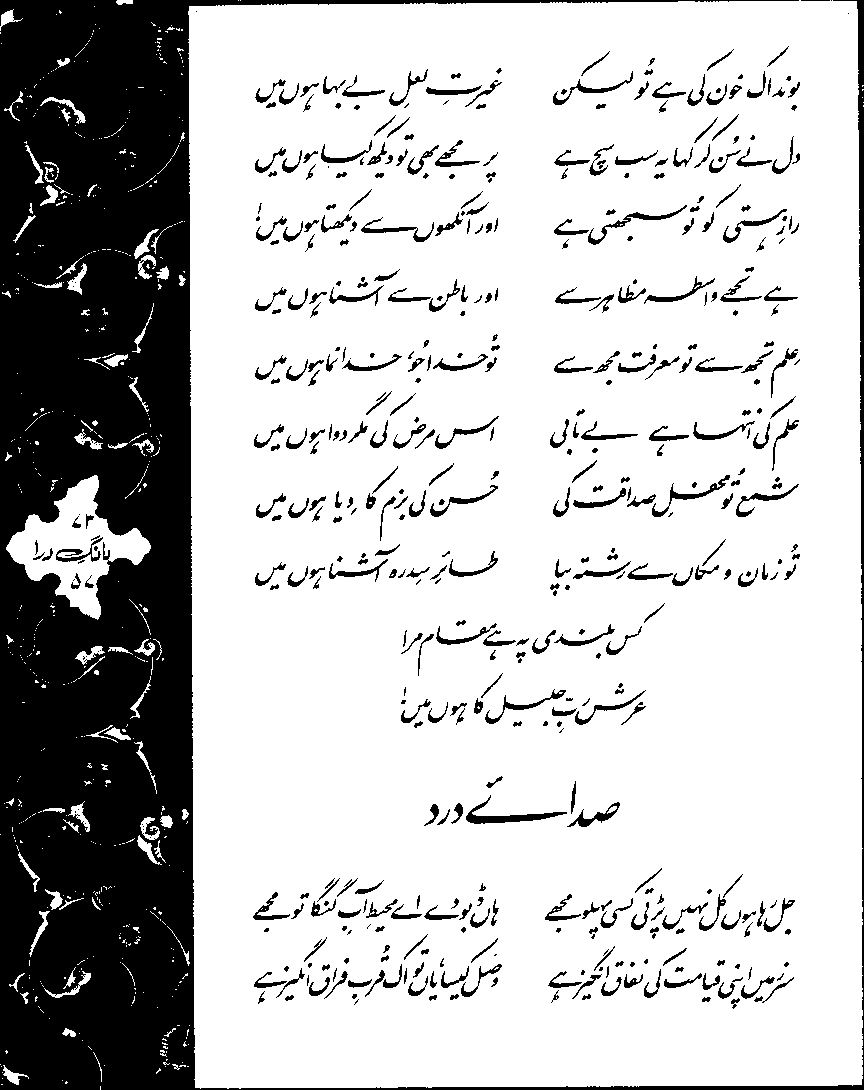 بوند اک خون کی ہے تُو لیکن غیرتِ لعلِ بے بہا ہوں میں
دل نے سُن کر کہا یہ سب سچ ہے پر مجھے بھی تو دیکھ کیا ہوں میں
رازِ ہستی کو تُو سمجھتی ہے اور آنکھوں سے دیکھتا ہوں میں!
ہے تجھے واسطہ مظاہر سے اور باطن سے آشنا ہوں میں
عِلم تجھ سے تو معرفت مجھ سے تُو خدا جُو، خدا نما ہوں میں
علم کی انتہا ہے بے تابی اس مرض کی مگر دوا ہوں میں
شمع تُو محفلِ صداقت کی حُسن کی بزم کا دِیا ہوں میں
تُو زمان و مکاں سے رشتہ بپا طائرِ سِدرہ آشنا ہوں میں
کس بلندی پہ ہے مقام مرا
عرش ربِّ جلیل کا ہوں میں!
صدائے درد
جل رہا ہوں کل نہیں پڑتی کسی پہلو مجھے ہاں ڈبو دے اے محیطِ آبِ گنگا تو مجھے
سرزمیں اپنی قیامت کی نفاق انگیز ہے وصل کیسا، یاں تو اک قُربِ فراق انگیز ہے
۷۳
بانگِ درا
۵۷